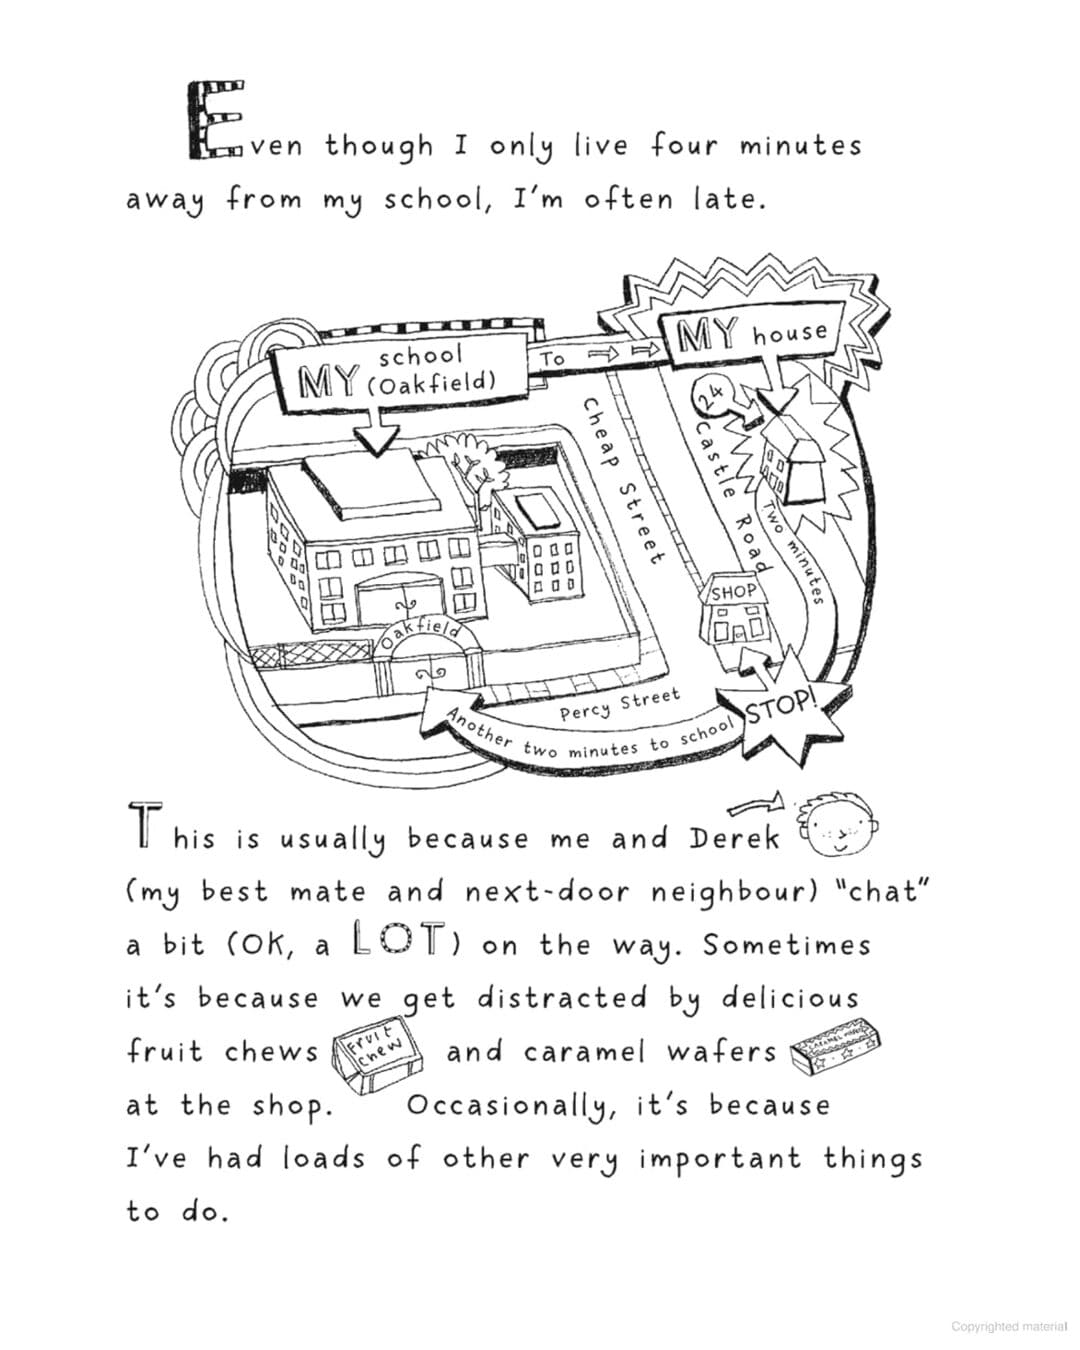 Even though I only live four minutes
away from my school, I'm often late.
MY school
(Oakfield)
To
MY house
24
Cheap Street
Castle Road
Two minutes
SHOP
Oakfield
Percy Street
STOP!
Another two minutes to school
This is usually because me and Derek
(my best mate and next-door neighbour) "chat"
a bit (OK, a LOT) on the way. Sometimes
it's because we get distracted by delicious
fruit chews FRUIT CHEW and caramel wafers CARAMEL WAFER
at the shop. Occasionally, it's because
I've had loads of other very important things
to do.
Copyrighted material